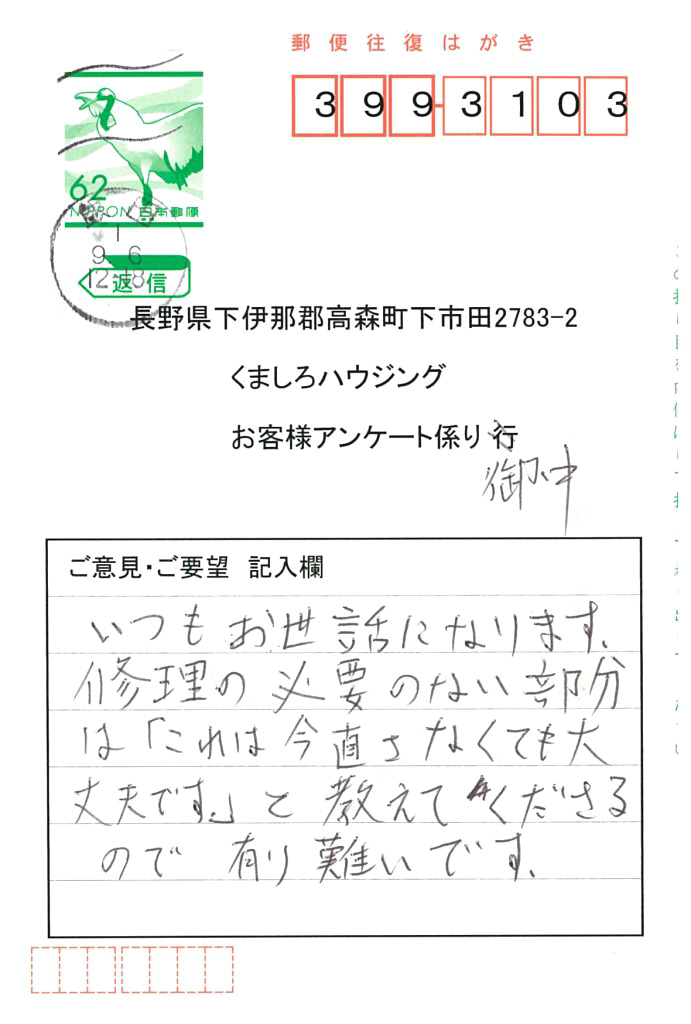 郵便往復はがき
399-3103
62
NIPPON 日本郵便
1
9 6
12-18
返信
長野県下伊那郡高森町下市田2783-2
くましろハウジング
お客様アンケート係り 行
御中
ご意見・ご要望 記入欄
いつもお世話になります。
修理の必要のない部分
は「これは今直さなくても大
丈夫です。」と教えてくださる
ので 有り難いです。